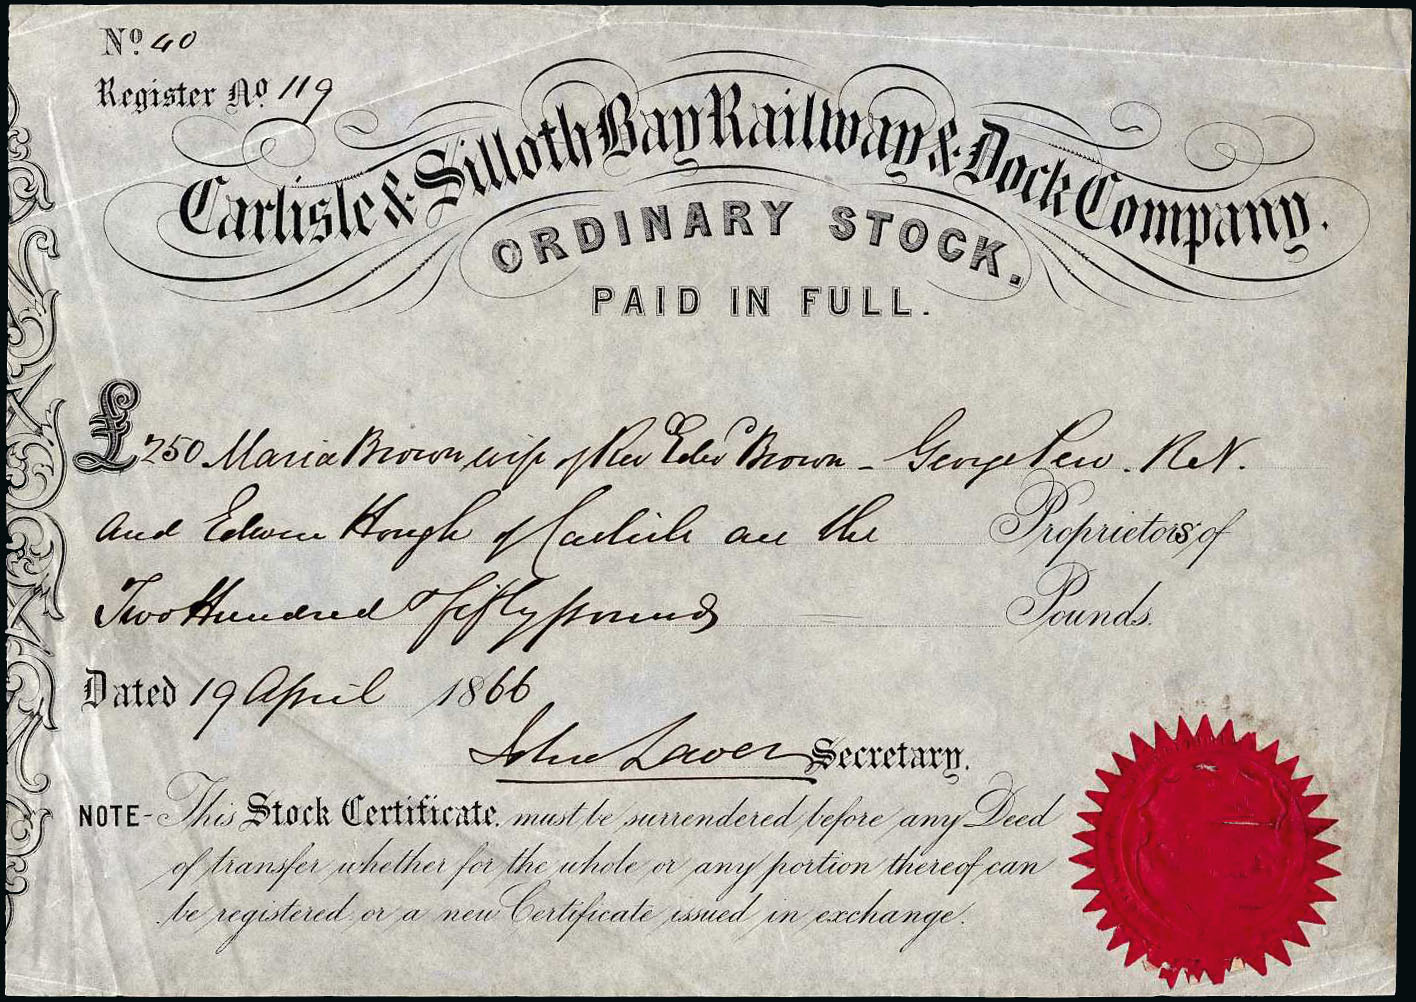 No 40
Register No 119
Carlisle & Silloth Bay Railway & Dock Company.
ORDINARY STOCK.
PAID IN FULL.
£250 Maria Brown wife of Rev Edwd Brown - George Pew. R.N.
and Edwin Hough of Carlisle are the Proprietors of
Two Hundred & fifty pounds = Pounds.
Dated 19 April 1866
John Laver Secretary.
NOTE - This Stock Certificate, must be surrendered before any Deed
of transfer whether for the whole or any portion thereof can
be registered or a new Certificate issued in exchange.